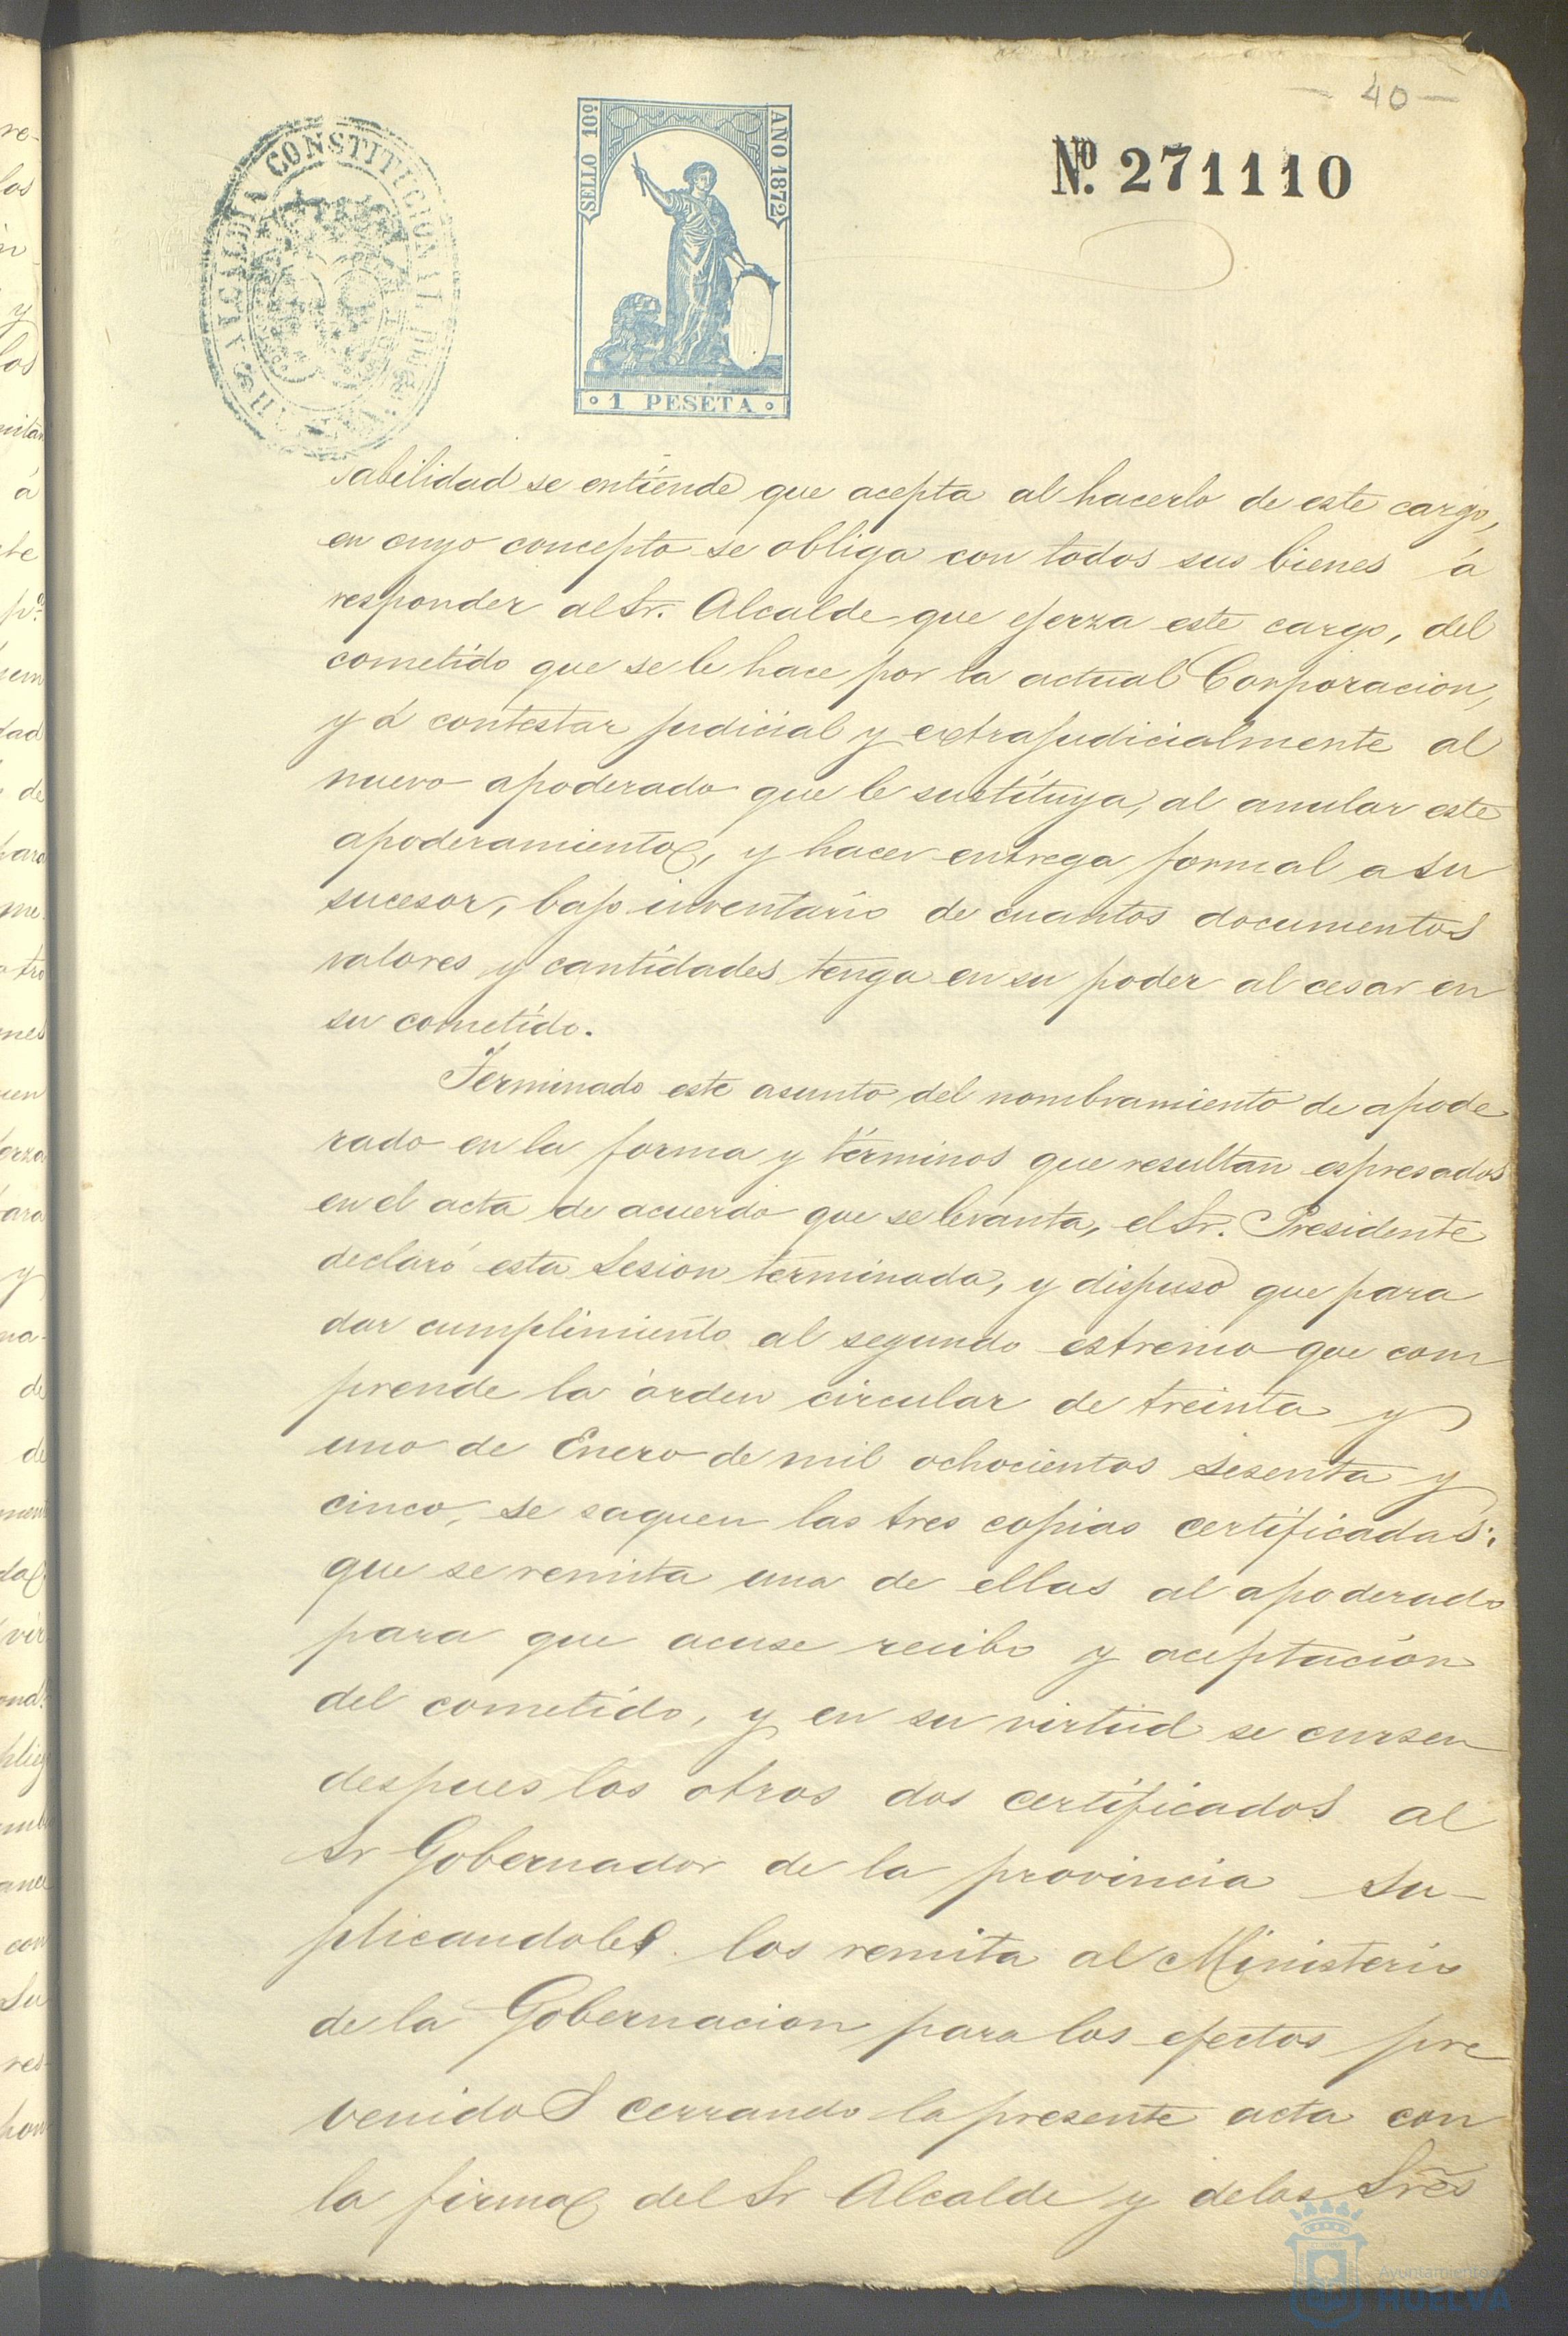 40
Nº. 271110
ALCALDIA CONSTITUCIONAL
SELLO 10º
AÑO 1872
1 PESETA
sabilidad se entiende que acepta al hacerlo de este cargo,
en cuyo concepto se obliga con todos sus bienes á
responder al Sr. Alcalde que ejerza este cargo, del
cometido que se le hace por la actual Corporacion,
y á contestar judicial y extrajudicialmente al
nuevo apoderado que le sustituya, al anular este
apoderamiento, y hacer entrega formal a su
sucesor, bajo inventario de cuantos documentos
valores y cantidades tenga en su poder al cesar en
su cometido.
Terminado este asunto del nombramiento de apode
rado en la forma y términos que resultan espresados
en el acta de acuerdo que se levanta, el Sr. Presidente
declaró esta Sesion terminada, y dispuso que para
dar cumplimiento al segundo estremo que com
prende la órden circular de treinta y
uno de Enero de mil ochocientos sesenta y
cinco, se saquen las tres copias certificadas:
que se remita una de ellas al apoderado
para que acuse recibo y aceptacion
del cometido, y en su virtud se cursen
despues los otros dos certificados al
Sr Gobernador de la provincia su-
plicandole los remita al Ministerio
de la Gobernacion para los efectos pre
venidos cerrando la presente acta con
la firma del Sr Alcalde y de los Sres
Ayuntamiento de
HUELVA